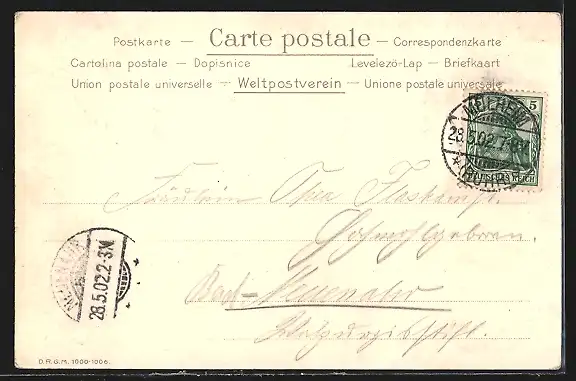 Postkarte — Carte postale — Correspondenzkarte
Cartolina postale — Dopisnice Levelező-Lap — Briefkaart
Union postale universelle — Weltpostverein — Unione postale universale
5
MÜLHEIM
28.5.02.7-8V.
(RUHR)
DEUTSCHES REICH
Fräulein
Hochwohlgeboren.
Bad-Neuenahr
28.5.02.2-3N.
D.R.G.M. 1000-1006.